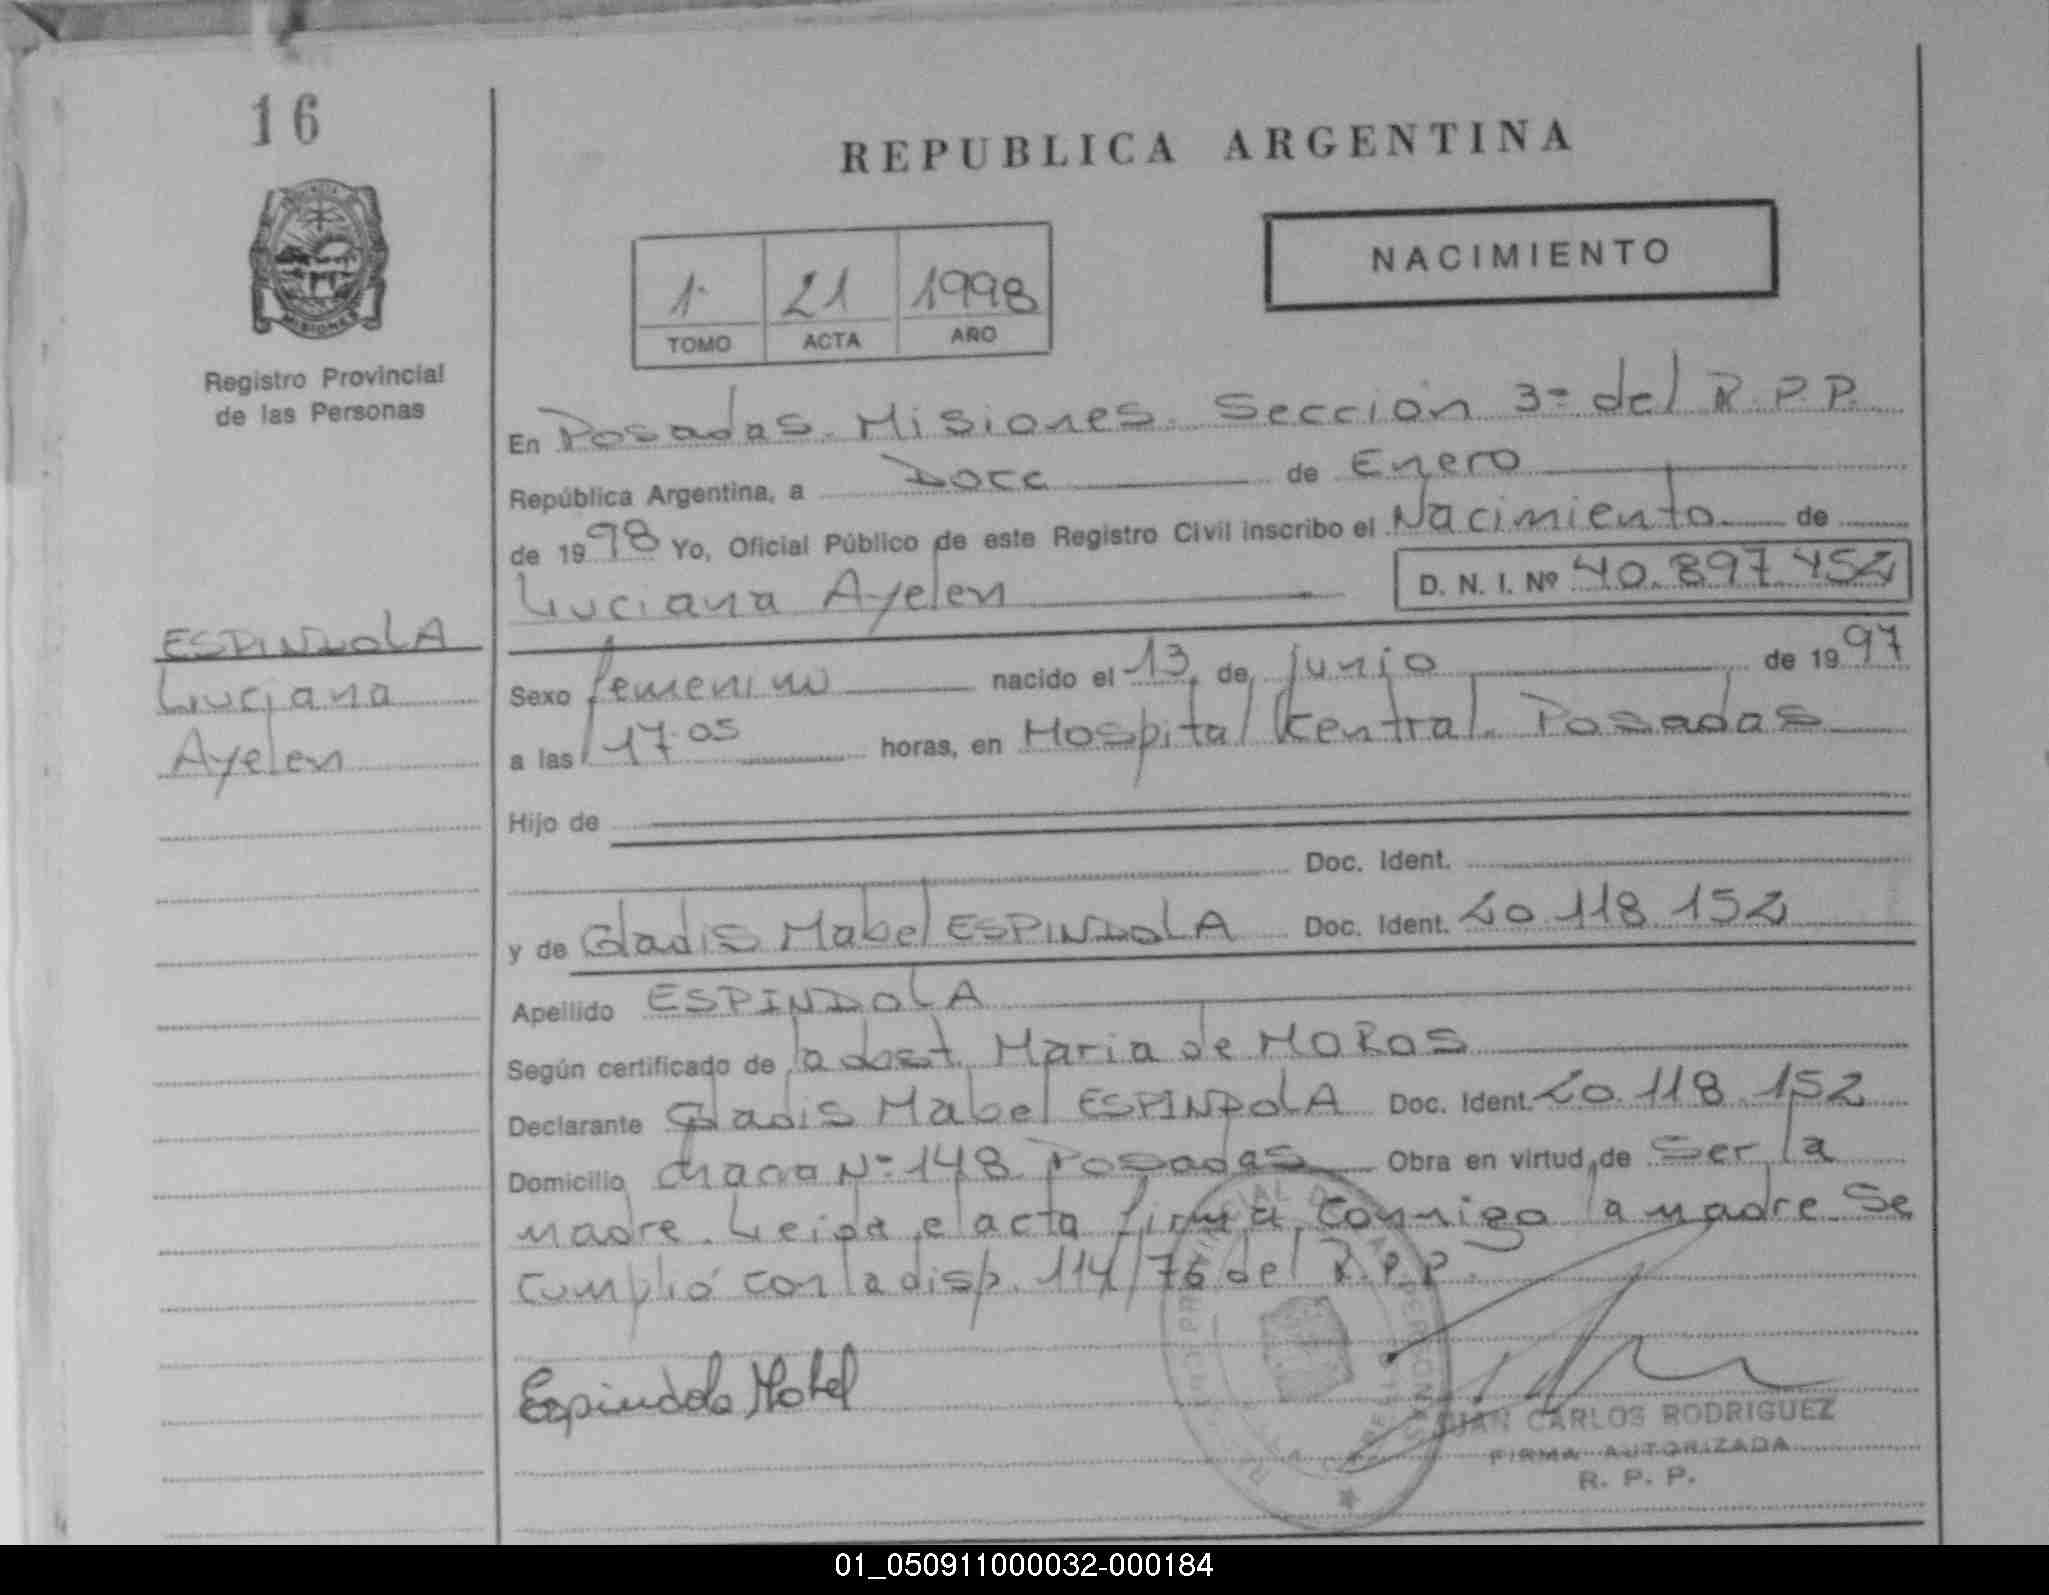 16
REPUBLICA ARGENTINA
NACIMIENTO
1. 21 1998
TOMO ACTA AÑO
MISIONES
Registro Provincial
de las Personas
En Posadas. Misiones. Sección 3ª del R.P.P.
República Argentina, a Doce de Enero
de 1998 Yo, Oficial Público de este Registro Civil inscribo el Nacimiento de
Luciana Ayelen D. N. I. Nº 40.897.452
ESPINDOLA
Luciana
Ayelen
Sexo femenino nacido el 13 de junio de 1997
a las 17.05 horas, en Hospital Central. Posadas
Hijo de
Doc. Ident.
y de Gladis Mabel ESPINDOLA Doc. Ident. 20.118.152
Apellido ESPINDOLA
Según certificado de la obst. Maria de MOROS
Declarante Gladis Mabel ESPINDOLA Doc. Ident. 20.118.152
Domicilio chacra Nº 148 Posadas Obra en virtud de ser la
madre. Leida el acta firma conmigo la madre. Se
cumplió con la disp. 114/76 del R.P.P.
Espindola Mabel
JUAN CARLOS RODRIGUEZ
FIRMA AUTORIZADA
R. P. P.
01_050911000032-000184